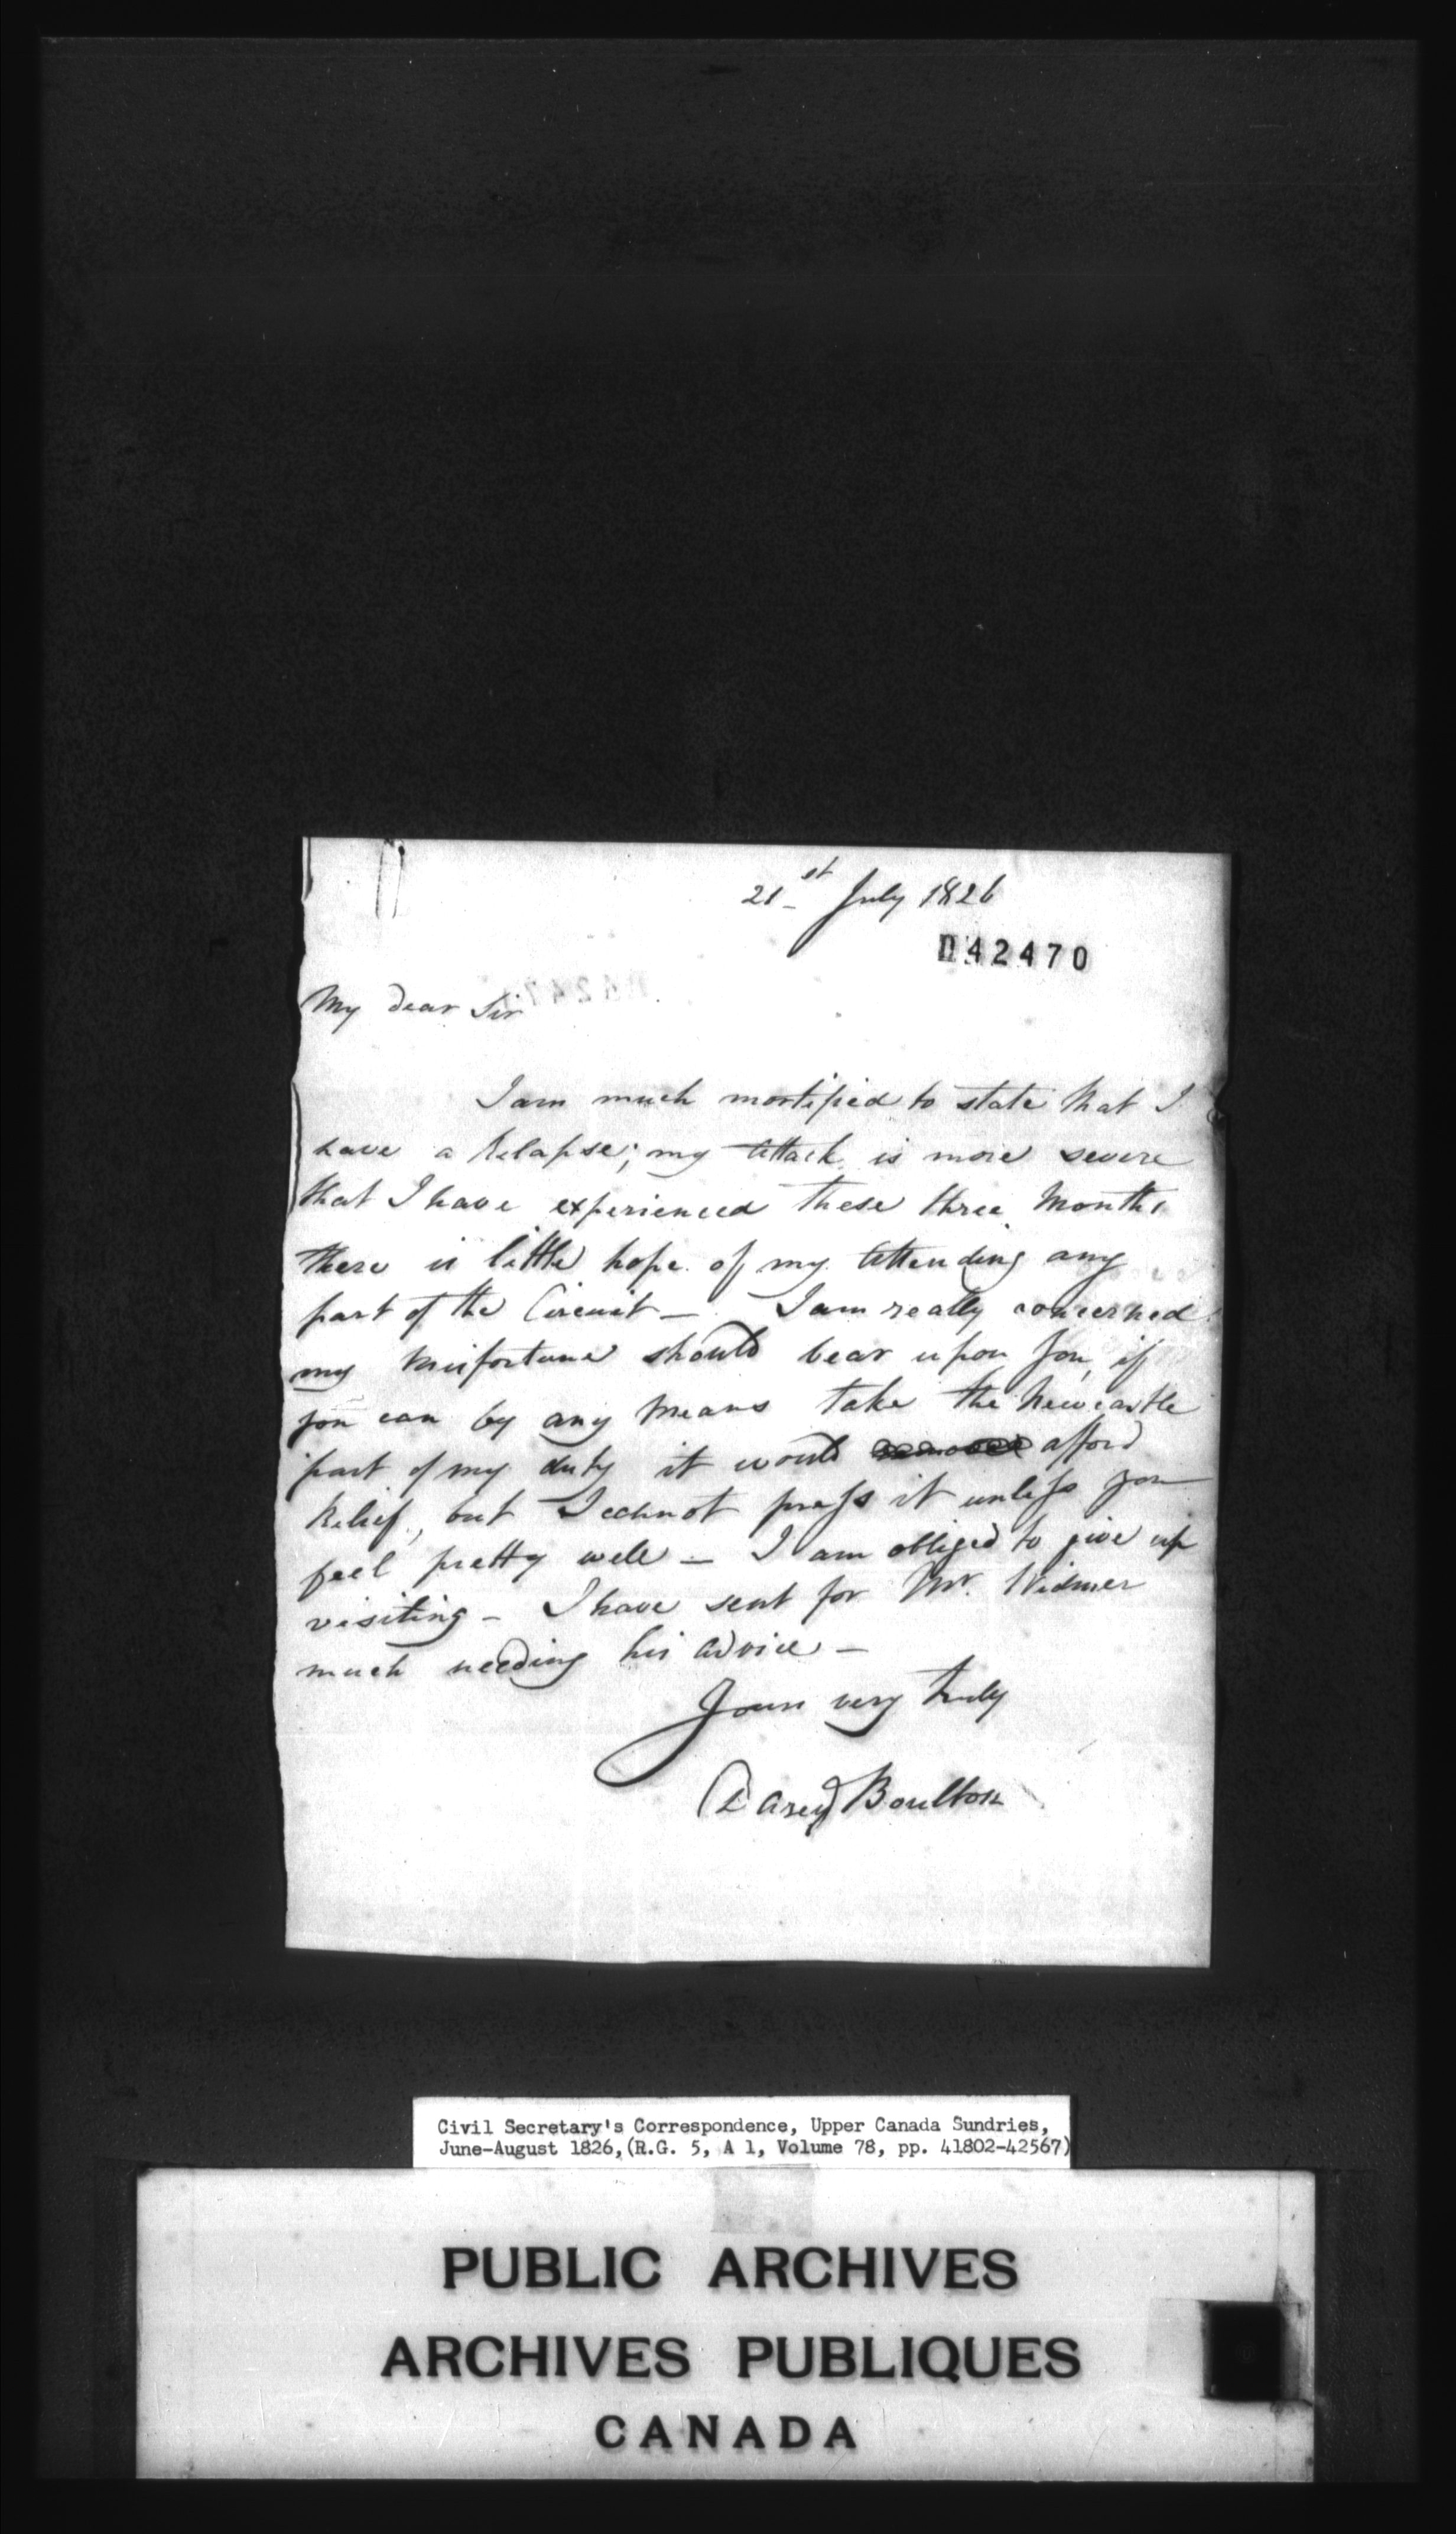 21st July 1826
042470
My dear Sir
I am much mortified to state that I
have a Relapse; my attack is more severe
that I have experienced these three Months
there is little hope of my attending any
part of the Circuit — I am really concerned
my Misfortune should bear upon you, if
you can by any Means take the Newcastle
part of my duty it would afford
Relief, but I cannot press it unless you
feel pretty well — I am obliged to give up
visiting — I have sent for Mr. Widmer
much needing his advice —
Yours very truly
D'Arcy Boulton
Civil Secretary's Correspondence, Upper Canada Sundries,
June-August 1826, (R.G. 5, A 1, Volume 78, pp. 41802-42567)
PUBLIC ARCHIVES
ARCHIVES PUBLIQUES
CANADA